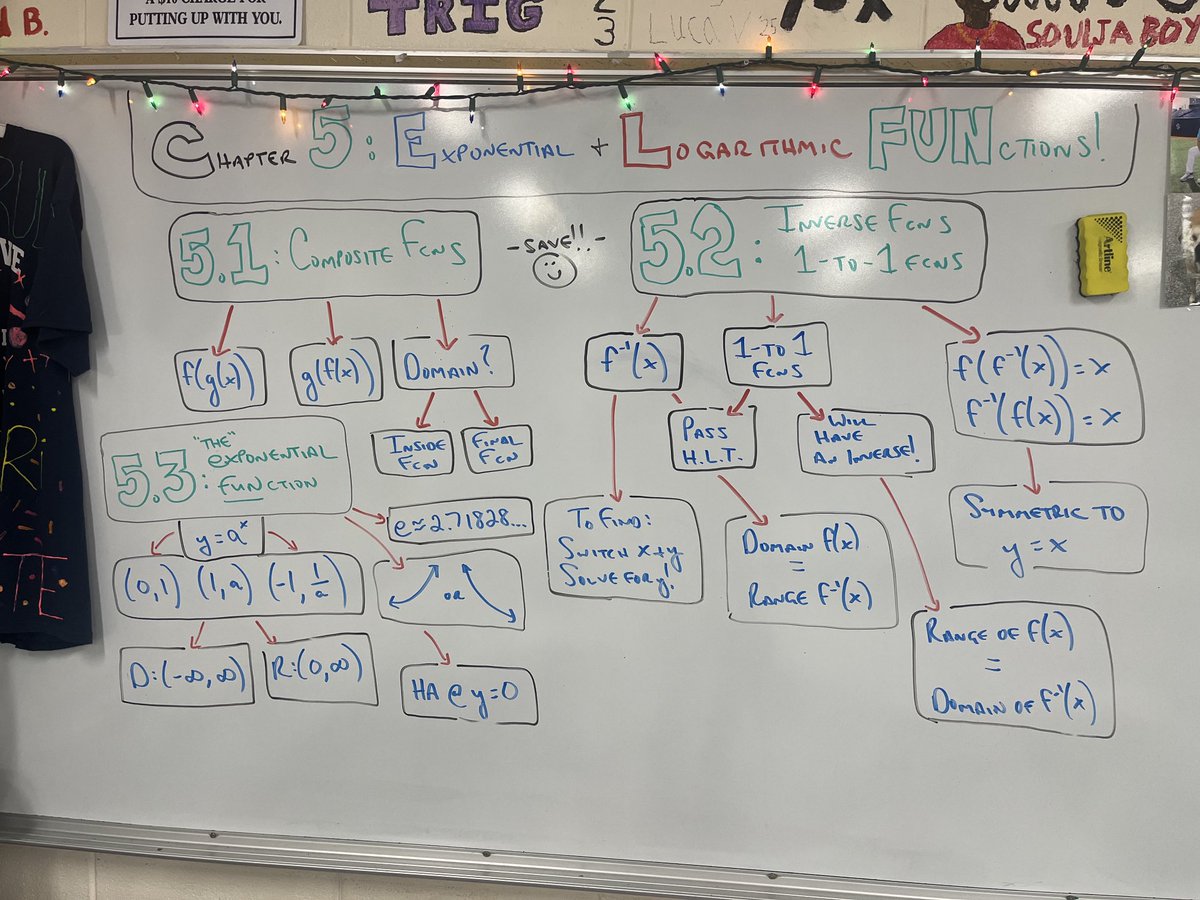 A $10 CHARGE FOR
PUTTING UP WITH YOU.
B.
TRIG
2
3
LUCA V 25
SOULJA BOY
CHAPTER 5: EXPONENTIAL + LOGARITHMIC FUNCTIONS!
5.1: COMPOSITE FCNS
f(g(x))
g(f(x))
DOMAIN?
INSIDE
FCN
FINAL
FCN
-SAVE!!-
5.2: INVERSE FCNS
1-TO-1 FCNS
f⁻¹(x)
1-TO 1
FCNS
f(f⁻¹(x))=x
f⁻¹(f(x))=x
PASS
H.L.T.
WILL
HAVE
AN INVERSE!
TO FIND:
SWITCH x+y
SOLVE FOR y!
DOMAIN f(x)
=
RANGE f⁻¹(x)
SYMMETRIC TO
y=x
RANGE OF f(x)
=
DOMAIN OF f⁻¹(x)
5.3: "THE" EXPONENTIAL
FUNCTION
y=aˣ
e≈2.71828...
(0,1) (1,a) (-1, 1/a)
OR
D:(-∞,∞)
R:(0,∞)
HA @ y=0
Artline